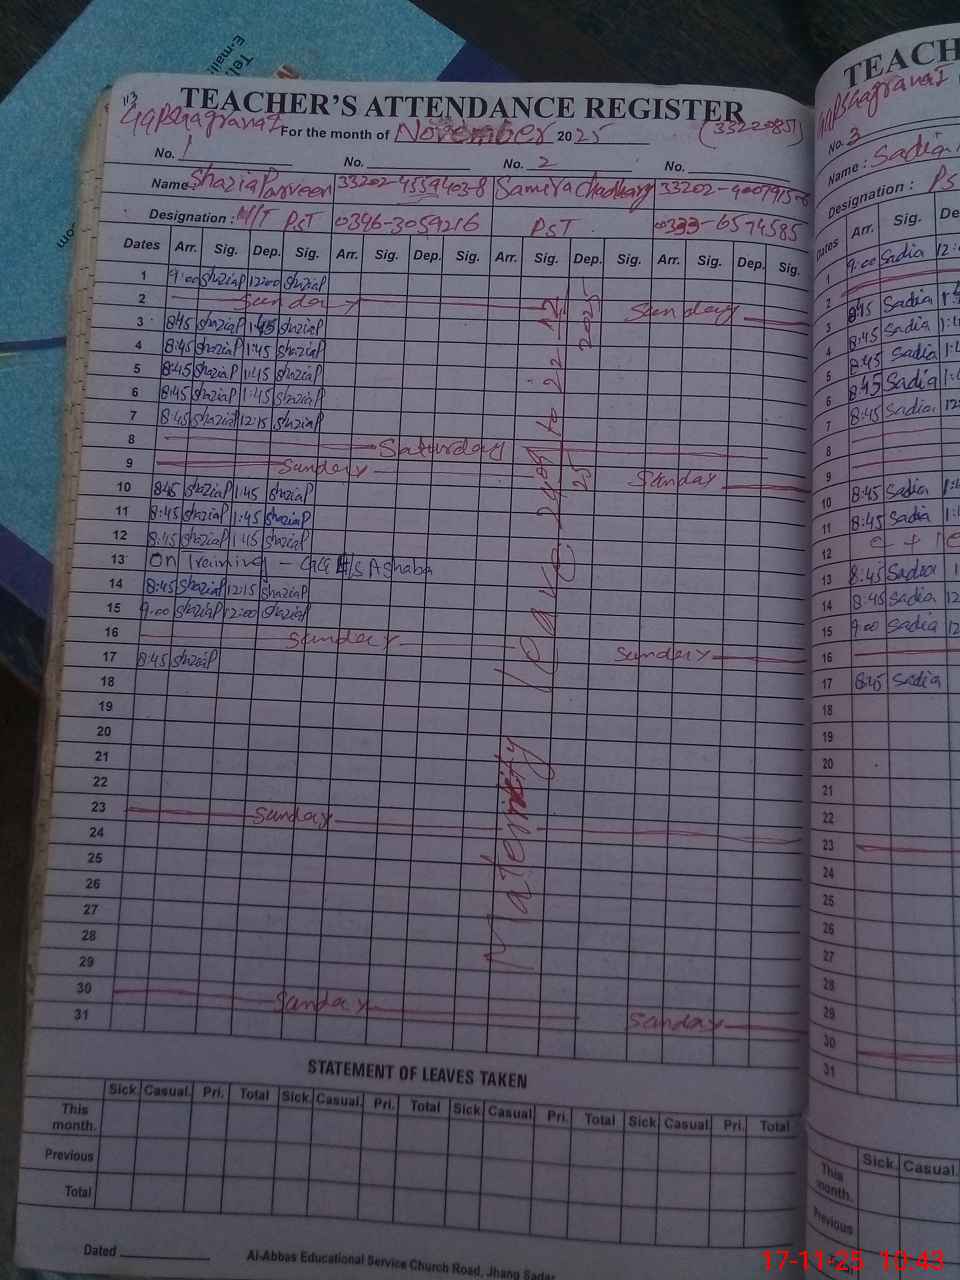 Tel
E-mail:
113
TEACHER'S ATTENDANCE REGISTER
For the month of November 2025 (33220851)
No. 1 No. No. 2 No.
Name: Shazia Parveen 33202-4559403-8 Samira Chadhary
Designation: M/T PST 0346-3059216 PST 0333-6574585
Dates Arr. Sig. Dep. Sig. Arr. Sig. Dep. Sig. Arr. Sig. Dep. Sig. Arr. Sig. Dep. Sig.
1 9:00 ShaziaP 12:00 ShaziaP
2 Sunday Sunday
3 8:45 ShaziaP 1:45 ShaziaP
4 8:45 ShaziaP 1:45 ShaziaP
5 8:45 ShaziaP 1:45 ShaziaP
6 8:45 ShaziaP 1:45 ShaziaP
7 8:45 ShaziaP 12:15 ShaziaP
8 Saturday
9 Sunday Sunday
10 8:45 ShaziaP 1:45 ShaziaP
11 8:45 ShaziaP 1:45 ShaziaP
12 8:45 ShaziaP 1:45 ShaziaP
13 On Training -
14 8:45 ShaziaP 12:15 ShaziaP
15 9:00 ShaziaP 12:00 ShaziaP
16 Sunday Sunday
17 8:45 ShaziaP
18
19
20
21
22
23 Sunday
24
25
26
27
28
29
30 Sunday Sunday
31
Maternity leave to 22-12 2025
STATEMENT OF LEAVES TAKEN
Sick Casual. Pri. Total Sick. Casual. Pri. Total Sick Casual. Pri. Total Sick Casual. Pri. Total
This month.
Previous
Total
Dated
Al-Abbas Educational Service Church Road, Jhang Sadar
TEACH
No. 3
Name: Sadia
Designation: PS
Dates Arr. Sig. De
1 9:00 Sadia 12:
2
3 8:45 Sadia 1:4
4 8:45 Sadia 1:4
5 8:45 Sadia 1:4
6 8:45 Sadia 1:4
7 8:45 Sadia 12
8
9
10 8:45 Sadia 1:4
11 8:45 Sadia 1:4
12
13 8:45 Sadia 1
14 8:45 Sadia 12
15 9:00 Sadia 12
16
17 8:45 Sadia
18
19
20
21
22
23
24
25
26
27
28
29
30
31
Sick. Casual.
This month.
Previous
17-11-25 10:43